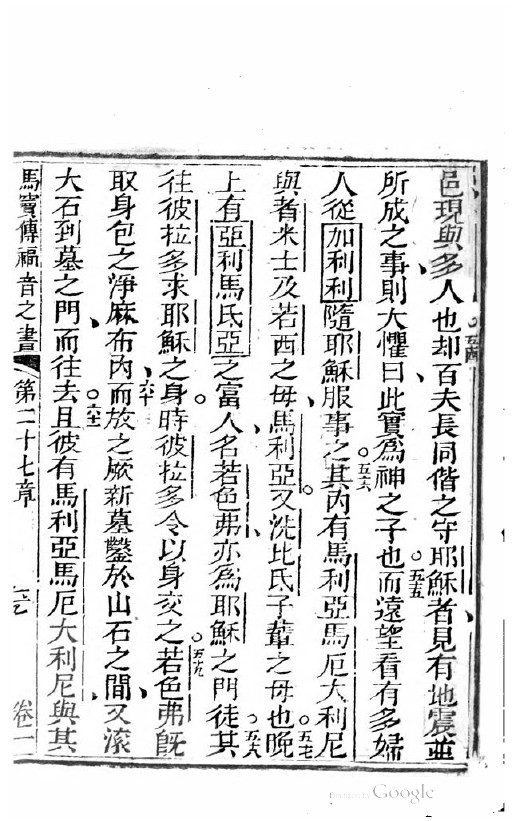 邑現與多人也却百夫長同偕之守耶穌者見有地震並
所成之事則大懼曰此實為神之子也而遠望看有多婦
人從加利利隨耶穌服事之其內有馬利亞馬厄大利尼
與者米士及若西之母馬利亞又洗比氏子輩之母也晚
上有亞利馬氏亞之富人名若色弗亦為耶穌之門徒其
往彼拉多求耶穌之身時彼拉多令以身交之若色弗既
取身包之淨麻布內而放之厥新墓鑿於山石之間又滾
大石到墓之門而往去且彼有馬利亞馬厄大利尼與其
馬竇傳福音之書 第二十七章 卷一
五四
五五
五六
五七
五八
五九
六十
六一
Google